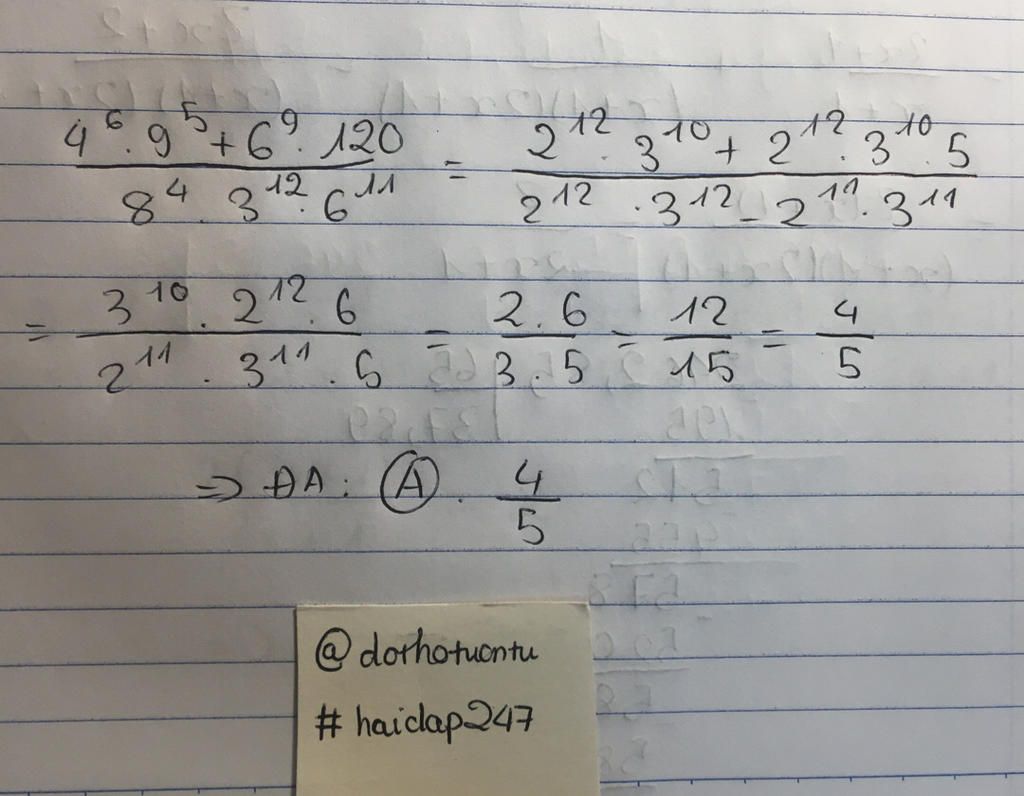 4^6 . 9^5 + 6^9 . 120 / 8^4 . 3^12 . 6^11 = 2^12 . 3^10 + 2^12 . 3^10 . 5 / 2^12 . 3^12 - 2^11 . 3^11
= 3^10 . 2^12 . 6 / 2^11 . 3^11 . 5 = 2 . 6 / 3 . 5 = 12 / 15 = 4 / 5
=> ĐA : A . 4 / 5
@dothotuontu
#haiclap247